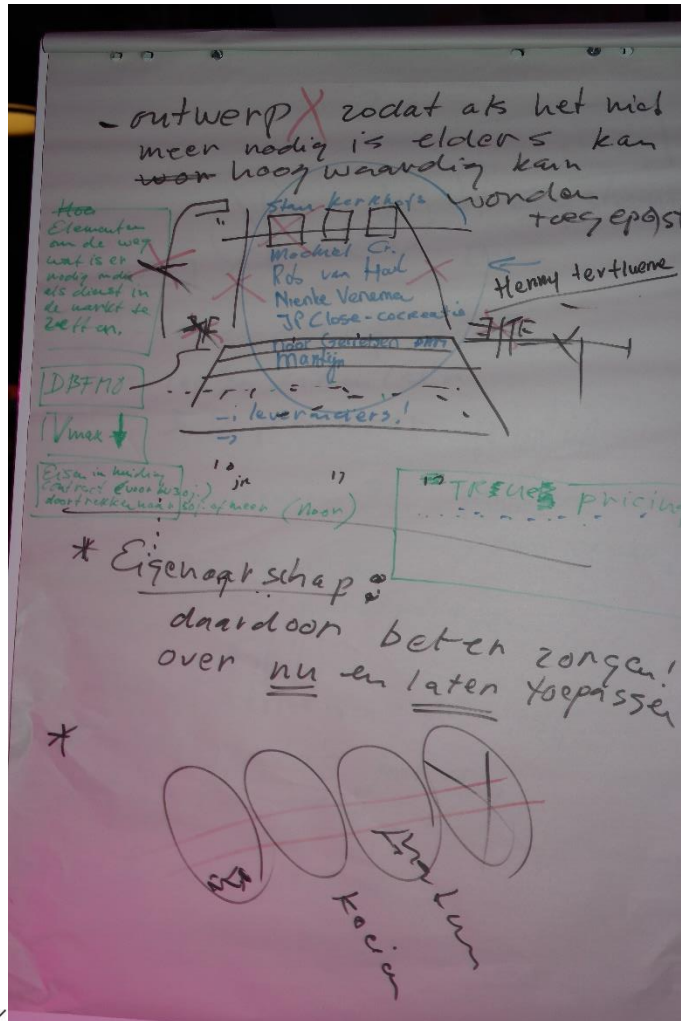 - ontwerp X zodat als het niet
meer nodig is elders kan
wor hoog waardig kan
worden
toegepast
Hoe
Elementen
om de weg
wat is er
nodig
als dienst in
de markt te
zetten.
Stan Kerkhofs
Michiel Cr.
Rob van
Nienke Venema
JP Close-cocreatie
Noor
Martijn
- leveranciers!
Henny
DBFMO
Vmax ↓
Eisen in huidig
contract
doortrekken naar of meer (Noor)
10 jr
17
TRUE pricing
* Eigenaarschap:
daardoor beter zorgen!
over nu en later toepassen
*